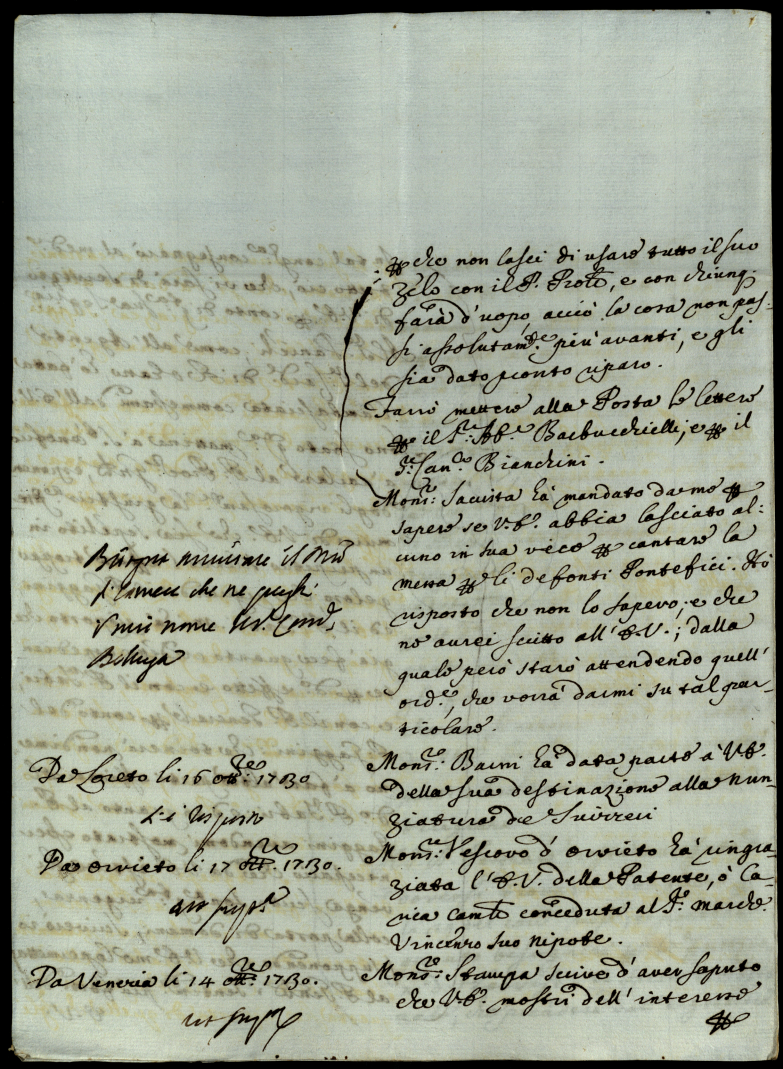 che non lasci di usare tutto il suo
zelo con il P. Prott.e, e con chiunq.
farà d'uopo, acciò la cosa non pas-
si assolutam.te più avanti, e gli
sia dato pronto riparo.
Farrò mettere alla Posta le lettere
il S.r Ab.e Barbucchielli, e il
S.r Can.co Bianchini.
Mons.r Sacrista hà mandato da me
sapere se V.E. abbia lasciato al:
cuno in sua vece cantare la
messa li defonti Pontefici. Hò
risposto che non lo sapevo, e che
ne aurei scritto all'E.V.; dalla
quale però starò attendendo quell'
ord.e, che vorrà darmi su tal par-
ticolare.
avvisare il
che ne preghi
mio nome
Belluga
Da Loreto li 16 ott.re 1730
Mons.r Barni hà data parte à V.E.
della sua destinazione alla Nun-
ziatura de Suizzeri
Da Orvieto li 17 ott.re 1730.
Mons.r Vescovo d'Orvieto hà ringra-
ziata l'E.V. della Patente, ò ca-
rica conceduta al S.r March.
Vincenzo suo nipote.
Da Venezia li 14 ott.re 1730.
Mons.r Stampa scrive d'aver saputo
che V.E. mostri dell'interesse